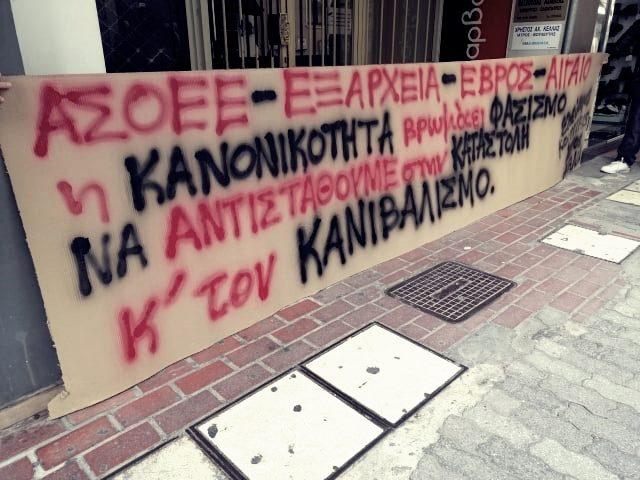 ΑΣΟΕΕ-ΕΞΑΡΧΕΙΑ-ΕΒΡΟΣ-ΑΙΓΑΙΟ
η ΚΑΝΟΝΙΚΟΤΗΤΑ βρωμάει ΦΑΣΙΣΜΟ
ΝΑ ΑΝΤΙΣΤΑΘΟΥΜΕ στην ΚΑΤΑΣΤΟΛΗ
Κ' τον ΚΑΝΙΒΑΛΙΣΜΟ.
ΧΡΗΣΤΟΣ ΑΚ. ΚΕΛΛΑΣ